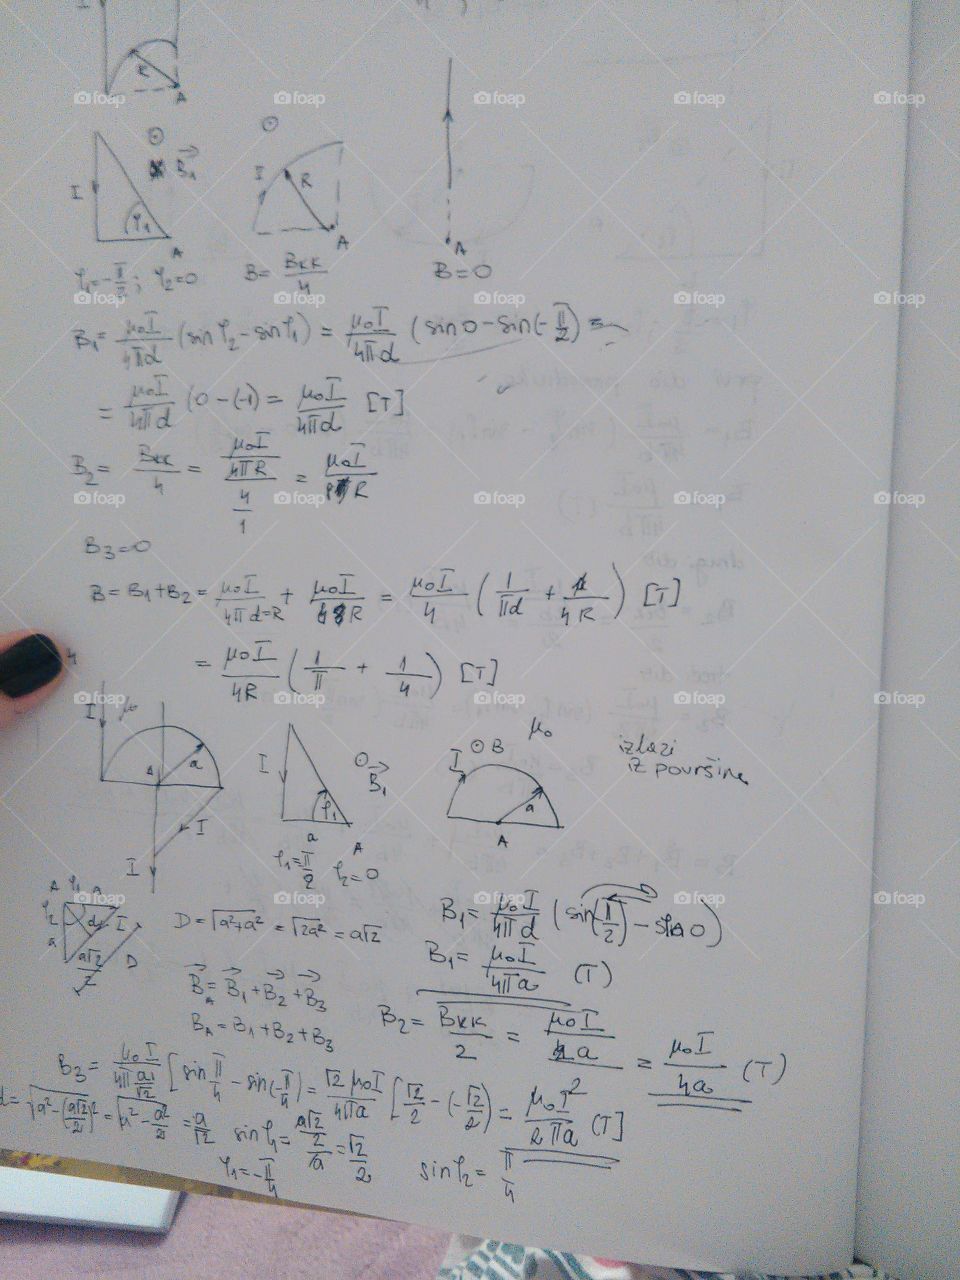 I
R
A
I
B₁
φ₁
A
I
R
A
A
φ₁=-π/2; φ₂=0
B= Bkk/4
B=0
B₁= μ₀I/4πd (sinφ₂-sinφ₁) = μ₀I/4πd (sin0-sin(-π/2) =
= μ₀I/4πd (0-(-1)= μ₀I/4πd [T]
B₂= Bkk/4 = μ₀I/4πR / 4/1 = μ₀I/8R
B₃=0
B=B₁+B₂= μ₀I/4πd=R + μ₀I/R = μ₀I/4 (1/πd + 1/4R) [T]
= μ₀I/4R (1/π + 1/4) [T]
I μ₀
A a
I
I
I B₁
φ₁
a A
φ₁=π/2 φ₂=0
I ⊙B μ₀
a
A
izlazi
iz površine
A φ₁ A
φ₂ d I
a
a√2/2
D
D=√a²+a² = √2a² = a√2
B₁= μ₀I/4πd (sin(π/2)-sin0)
B₁= μ₀I/4πa (T)
B_A=B₁+B₂+B₃
B_A=B₁+B₂+B₃
B₂= Bkk/2 = μ₀I/2a = μ₀I/4a (T)
B₃= μ₀I/4π a/√2 [sin π/4 - sin(-π/4) = √2 μ₀I/4πa [√2/2 - (-√2/2) = μ₀I²/2πa [T]
d= √a²-(a√2/2)² = √a²-a²/2 = a/√2 sinφ₁= a√2/2/a = √2/2
φ₁=-π/4 sinφ₂= π/4